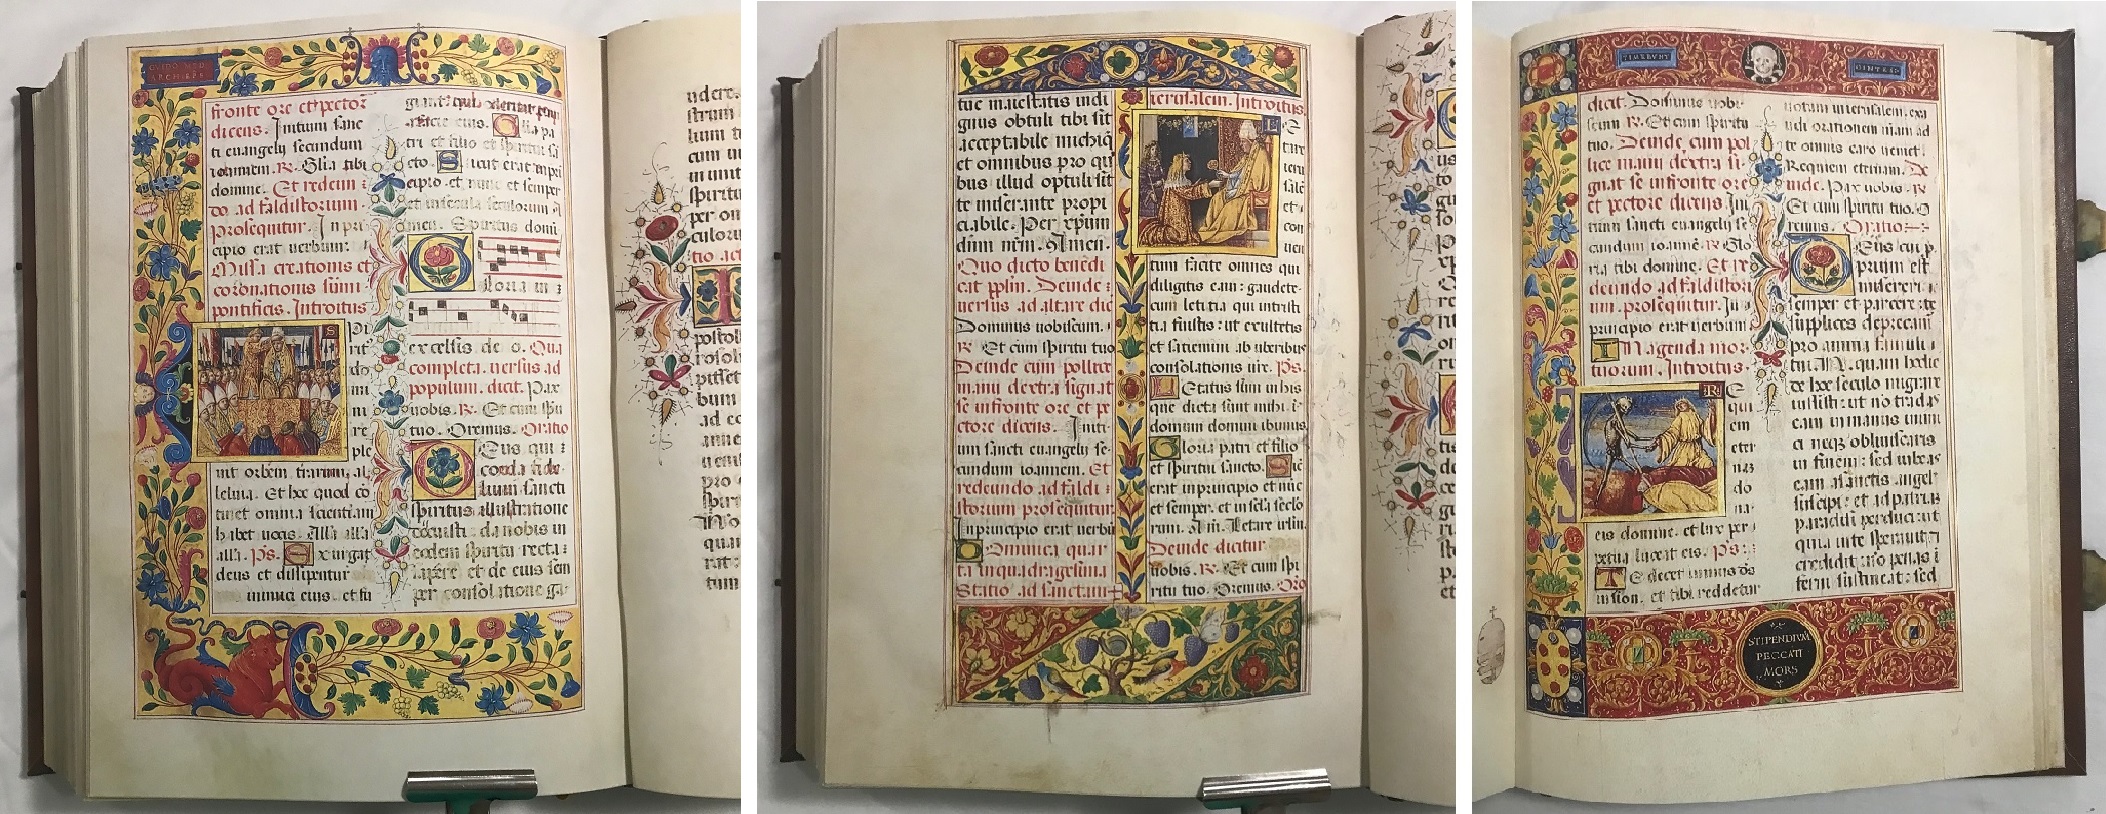 GVIDO MED
ARCHIEPS
fronte ore et pector
dicens. Initium sanc
ti euangely secundum
iohannem. R. Glia tibi
domine. Et redeun
do ad faldistorium
prosequitur. In prin
cipio erat uerbum.
Missa creationis et
coronationis sumi
pontificis. Introitus
S
Spi
rit
do
mi
re
ple
uit orbem terrarum, al
leluia. Et hoc quod co
tinet omnia scientiam
habet uocis. Alla alla
alla. Ps. Exurgat
deus et dissipentur
inimici eius. et fu
tri et filio et spiritui sa
cto. Sicut erat in pri
cipio et nunc et semper
et in secula seculorum a
men. Spiritus domi
Gloria in
excelsis de o. Qua
completa. uersus ad
populum. dicit. Pax
uobis. R. Et cum spu
tuo. Oremus. Oratio
Deus qui
corda fide
lium sancti
spiritus illustratione
docuisti: da nobis in
eodem spiritu recta
sapere et de eius sem
per consolatione ga
tue maiestatis indi
gnus obtuli tibi sit
acceptabile michiq
et omnibus pro qui
bus illud optuli sit
te miserante propi
ciabile. Per xpum
dnm nrm. Amen.
Quo dicto benedi
cit pplm. Deinde
uersus ad altare dic
Dominus uobiscum.
R. Et cum spiritu tuo
Deinde cum pollice
manu dextra signat
se in fronte ore et pe
ctore dicens. Initi
um sancti euangely se
cundum ioannem. Et
redeundo ad faldi
storium prosequitur
In principio erat uerbu
Dominica quar
ta in quadragesima
Statio ad sanctam
ierusalem. Introitus
L
E
tare
ieru
sale
et
con
uen
tum facite omnes qui
diligitis eam: gaudete
cum letitia qui intristi
tia fuistis: ut exultetis
et satiemini ab uberibus
consolationis ure. Ps.
Letatus sum in his
que dicta sunt mihi i
domum domini ibimus
Gloria patri et filio
et spiritui sancto. Sic
erat in principio et nuc
et semper. et in secla seclo
rum. Am. Letare irlm.
Deinde dicitur
nobis. R. Et cum spi
ritu tuo. Oremus. Oro
TIMEBVNT
GENTES
dicit. Dominus uobi
scum R. Et cum spiritu
tuo. Deinde cum pol
lice manu dextra si
gnat se in fronte ore
et pectore dicens Ini
tium sancti euangely se
cundum ioanne. R. Glo
ria tibi domine. Et re
deundo ad faldistori
um. prosequitur. In
principio erat uerbum
In agenda mor
tuorum. Introitus
R
E
qui
em
eter
nas
do
na
eis domine. et lux per
petua luceat eis. Ps.
Te decet himnus ds
in sion. et tibi reddetur
uotum in ierusalem. exa
udi orationem meam ad
te omnis caro ueniet.
Requiem eternam. De
inde. Pax uobis. R.
Et cum spiritu tuo. O
remus. Oratio
Deus cui p
prium est
misereri
semper et parcere: te
supplices deprecam
pro anima famuli
tui N. quam hodie
de hoc seculo migrare
iussisti: ut no tradas
eam in manus inimi
ci neq obliuiscaris
in finem: sed iubeas
eam a sanctis angel
suscipi: et ad patria
paradisi perduci: ut
quia in te sperauit
credidit: no penas i
ferni sustineat: sed
STIPENDIVM
PECCATI
MORS